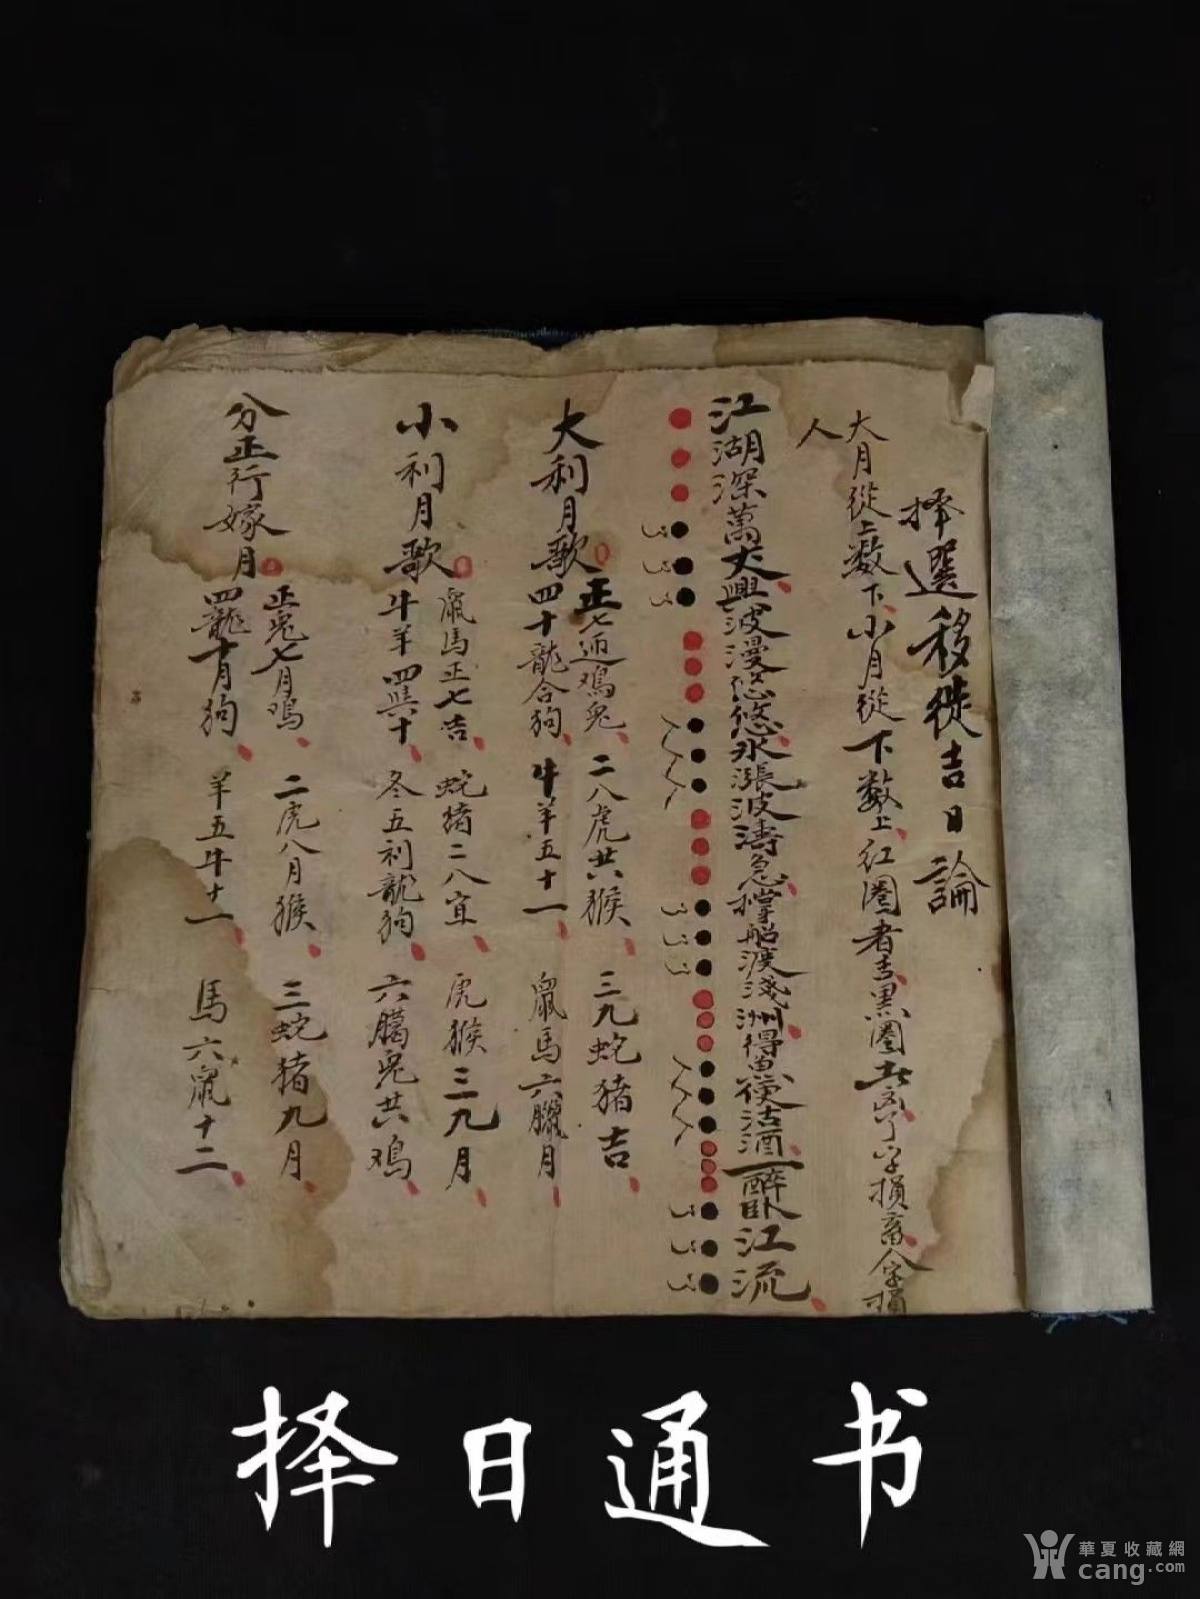 择選移徙吉日論
大月從上数下小月從下数上红圈者吉黑圈者凶了字損畜人字損
人
江湖深萬丈興波漫悠悠水漲波濤急撑船渡淺洲得留便沽酒一醉臥江流
大利月歌
正七迎鸡兔 二八虎共猴 三九蛇猪吉
四十龍合狗 牛羊五十一 鼠馬六臘月
小利月歌
鼠馬正七吉 蛇猪二八宜 虎猴三九月
牛羊四與十 冬五利龍狗 六臈兔共鸡
分正行嫁月
正兔七月鸡 二虎八月猴 三蛇猪九月
四龍十月狗 羊五牛十一 馬六鼠十二
择日通书
華夏收藏網
cang.com